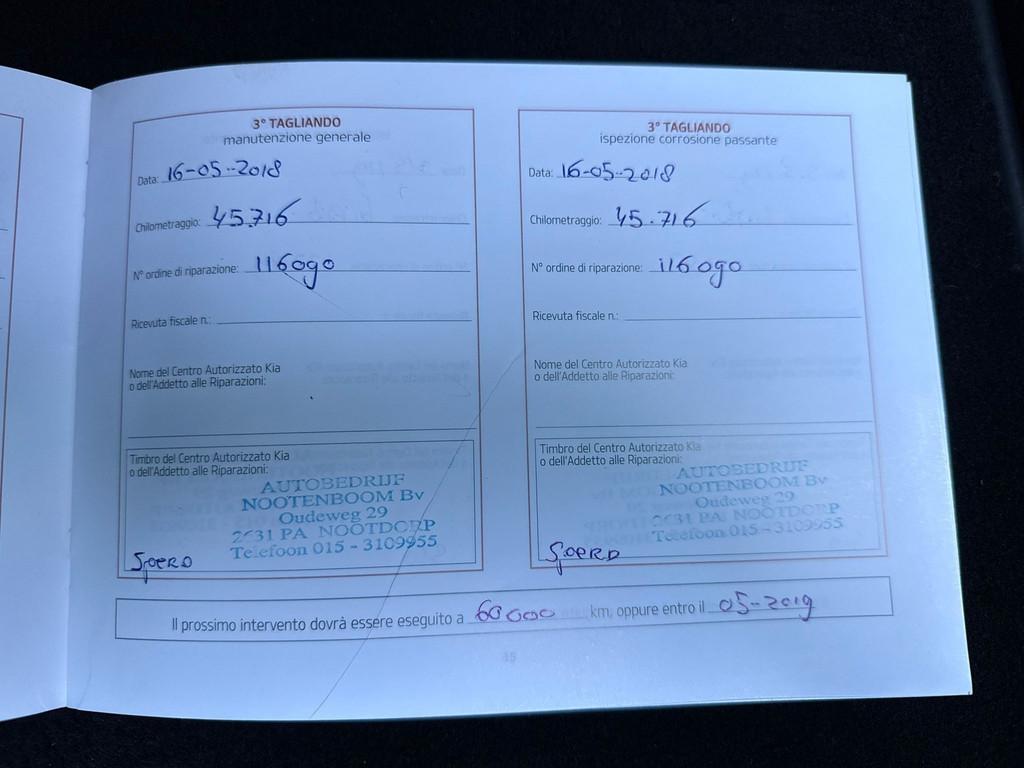 3° TAGLIANDO
manutenzione generale
Data: 16-05-2018
Chilometraggio: 45.716
N° ordine di riparazione: 116090
Ricevuta fiscale n.:
Nome del Centro Autorizzato Kia
o dell'Addetto alle Riparazioni:
Timbro del Centro Autorizzato Kia
o dell'Addetto alle Riparazioni:
AUTOBEDRIJF
NOOTENBOOM Bv
Oudeweg 29
2631 PA NOOTDORP
Telefoon 015 - 3109955
Sjoerd
3° TAGLIANDO
ispezione corrosione passante
Data: 16-05-2018
Chilometraggio: 45.716
N° ordine di riparazione: 116090
Ricevuta fiscale n.:
Nome del Centro Autorizzato Kia
o dell'Addetto alle Riparazioni:
Timbro del Centro Autorizzato Kia
o dell'Addetto alle Riparazioni:
AUTOBEDRIJF
NOOTENBOOM Bv
Oudeweg 29
2631 PA NOOTDORP
Telefoon 015 - 3109955
Sjoerd
Il prossimo intervento dovrà essere eseguito a 60000 km, oppure entro il 05-2019